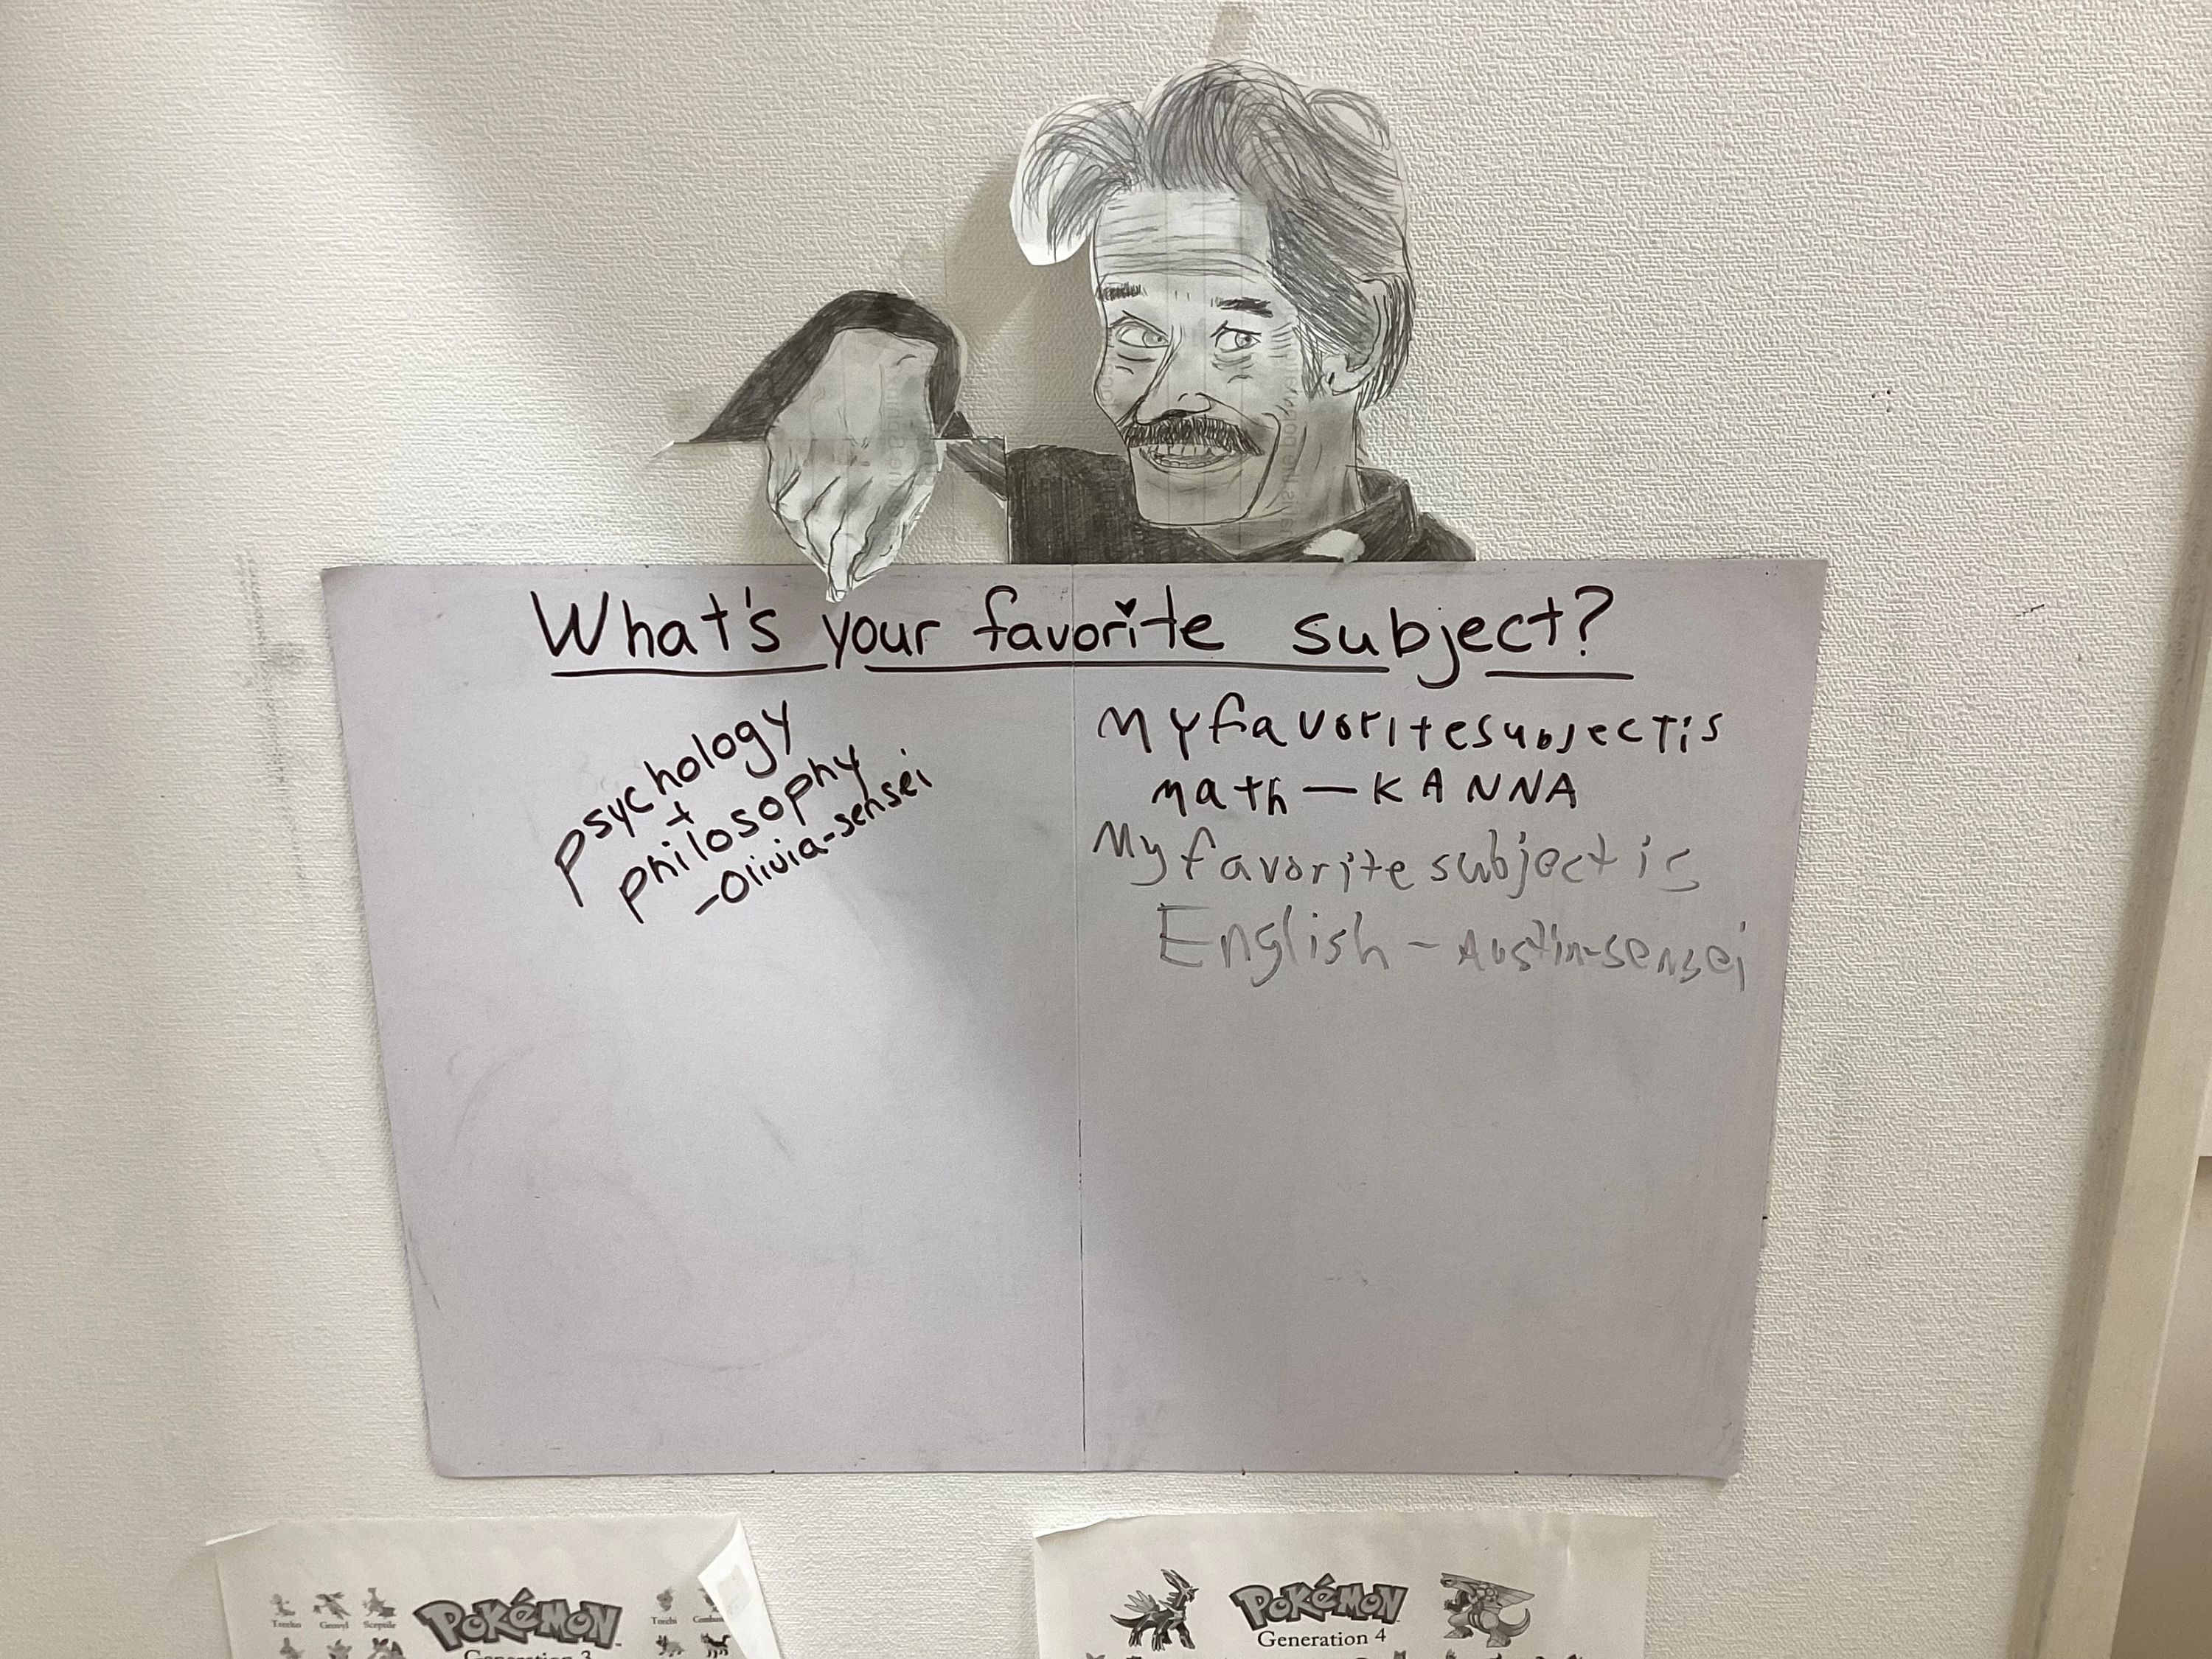 What's your favorite subject?
psychology
+
philosophy
-Olivia-sensei
My favorite subject is
math — KANNA
My favorite subject is
English - Austin-sensei
Treecko Grovyle Sceptile
POKéMON
Torchic
Generation 3
POKéMON
Generation 4